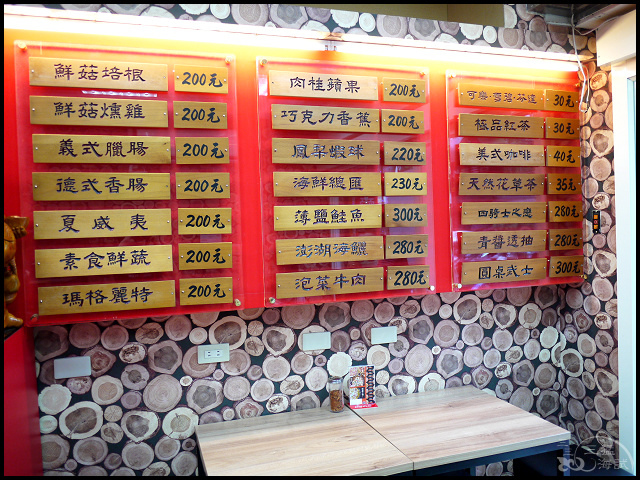 鮮菇培根 200元
鮮菇燻雞 200元
義式臘腸 200元
德式香腸 200元
夏威夷 200元
素食鮮蔬 200元
瑪格麗特 200元
肉桂蘋果 200元
巧克力香蕉 200元
鳳梨蝦球 220元
海鮮總匯 230元
薄鹽鮭魚 300元
澎湖海鱺 280元
泡菜牛肉 280元
可樂·雪碧·芬達 30元
極品紅茶 30元
美式咖啡 40元
天然花草茶 35元
四騎士之戀 280元
青醬透抽 280元
圓桌武士 300元